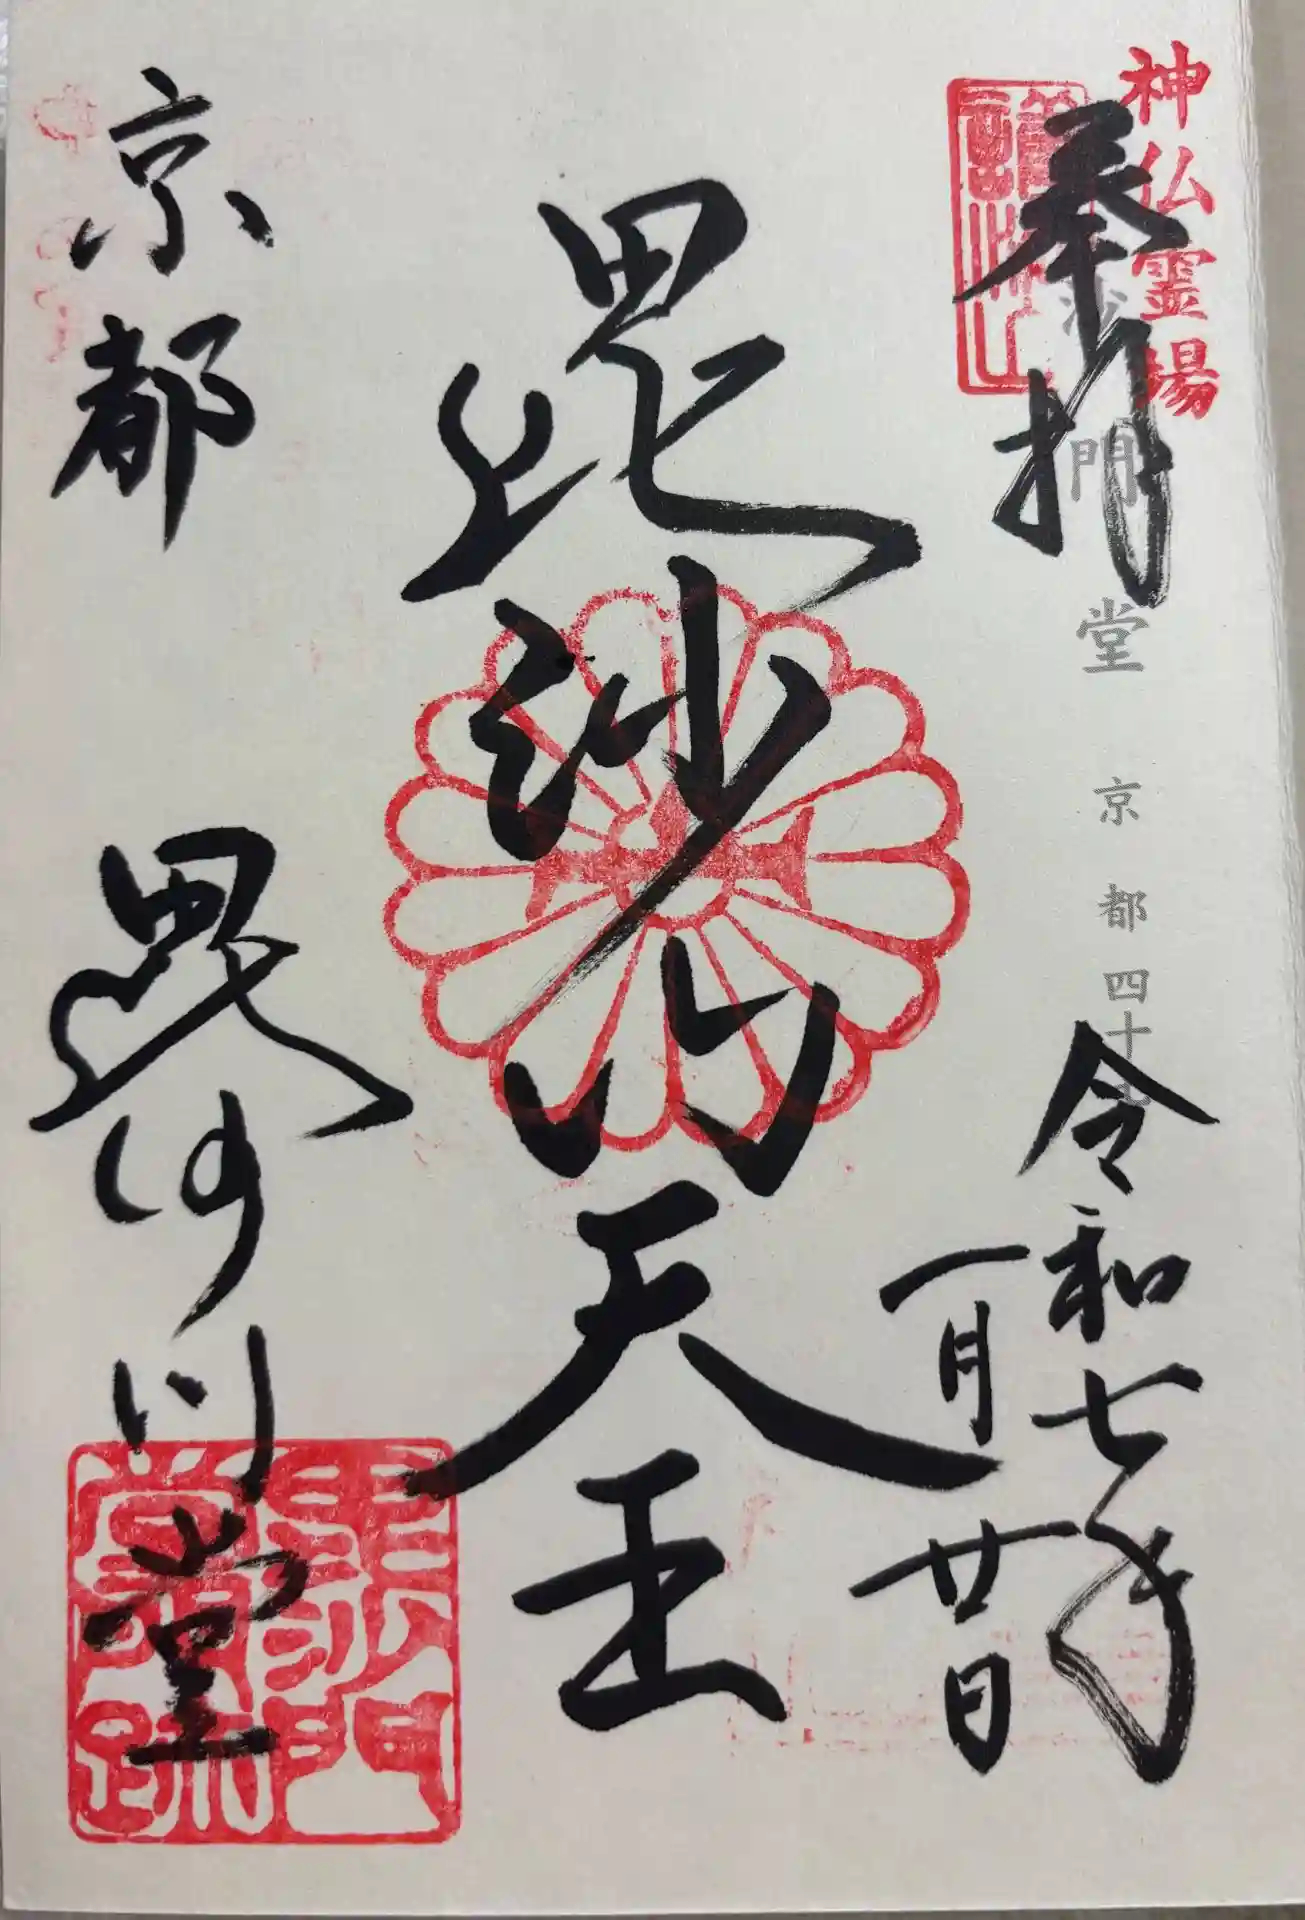 神仏霊場
奉拝
沙門堂 京都四十七
令和七年
一月廿日
毘沙門天王
京都 毘沙門堂
毘沙門
堂跡